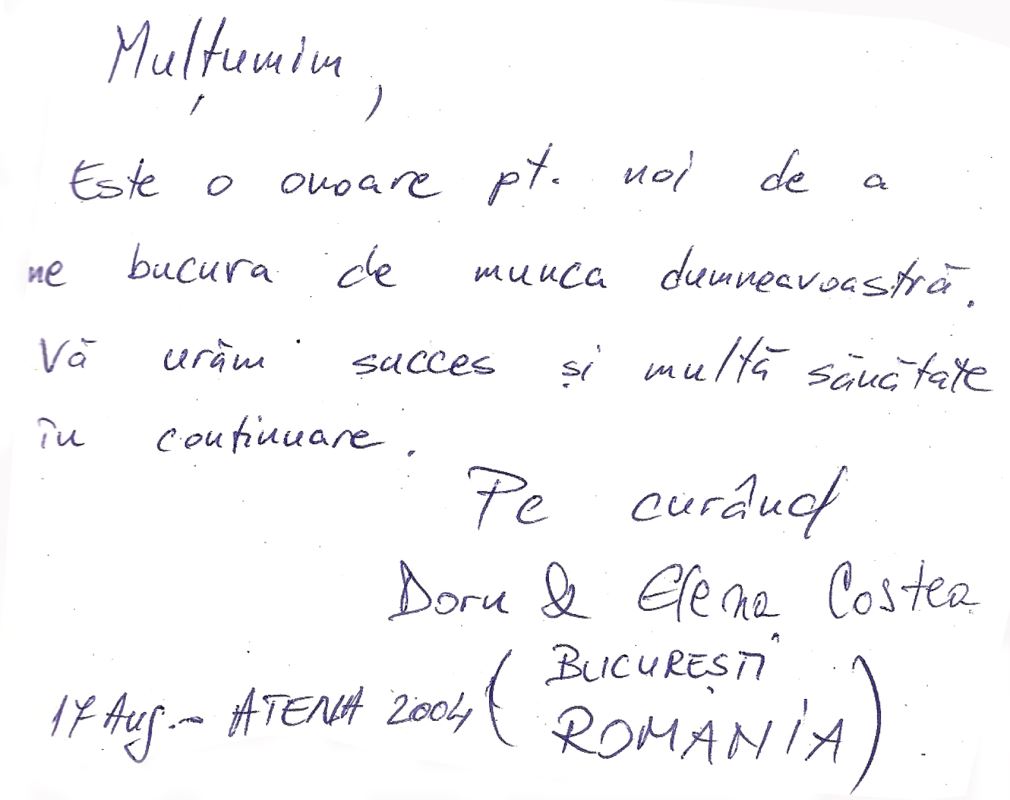 Mulțumim,
Este o onoare pt. noi de a
ne bucura de munca dumneavoastră.
Vă urăm succes și multă sănătate
în continuare.
Pe curând
Doru & Elena Costea
(BUCUREȘTI
17 Aug. - ATENA 2004
ROMANIA)